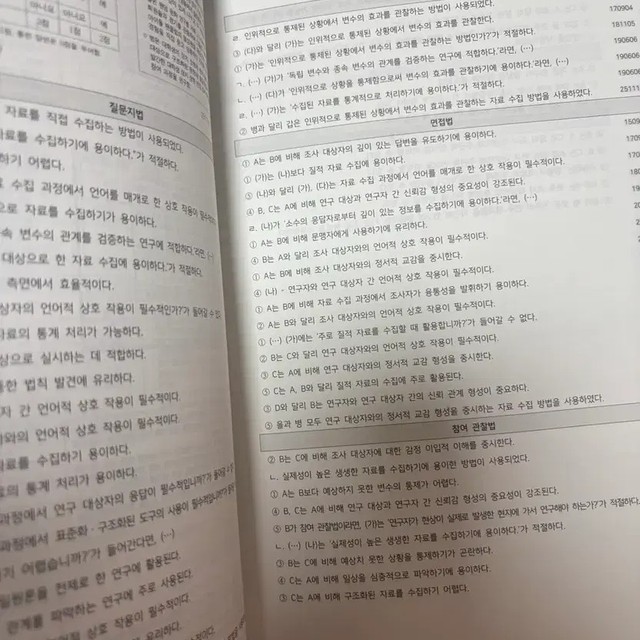 아니요 아니요
그림 그림
1점 2점
질문지법
자료를 직접 수집하는 방법이 사용되었다.
자료를 수집하기에 용이하다.'가 적절하다.
하기 어렵다.
수집 과정에서 언어를 매개로 한 상호 작용이 필수적이다.
으로 자료를 수집하기가 용이하다.
종속 변수의 관계를 검증하는 연구에 적합하다.'라면, (…)
대상으로 한 자료 수집에 용이하다.'가 적절하다.
측면에서 효율적이다.
상자와의 언어적 상호 작용이 필수적인가?'가 들어갈 수 있다
자료의 통계 처리가 가능하다.
상으로 실시하는 데 적합하다.
한 법칙 발견에 유리하다.
자 간 언어적 상호 작용이 필수적이다.
와의 언어적 상호 작용이 필수적이다.
료를 수집하기 용이하다.
의 통계 처리가 용이하다.
과정에서 연구 대상자의 응답이 필수적입니까?'가 들어갈 수
과정에서 표준화·구조화된 도구의 사용이 필수적입니까?'가
기 어렵습니까?'가 들어간다면, (…)
일원론을 전제로 한 연구에 활용된다.
관계를 파악하는 연구에 주로 사용된다.
언어적 상호 작용이 필수적이다.
유리하다.
ㄹ. 인위적으로 통제된 상황에서 변수의 효과를 관찰하는 방법이 사용되었다. 170904
③ (다)와 달리 (가)는 인위적으로 통제된 상황에서 변수의 효과를 관찰한다. 181105
① (가)는 '인위적으로 통제된 상황에서 변수의 효과를 관찰하는 방법인가?'가 적절하다. 190606
ㄱ. (…) (가)가 '독립 변수와 종속 변수의 관계를 검증하는 연구에 적합하다.'라면, (…) 190606
ㄴ. (…) (다)가 '인위적으로 상황을 통제함으로써 변수의 효과를 관찰하기에 용이하다.'가 적절하다. 190606
ㄹ. (…) (가)는 '수집된 자료를 통계적으로 처리하기에 용이하다.'라면, (…)
② 병과 달리 갑은 인위적으로 통제된 상황에서 변수의 효과를 관찰하는 자료 수집 방법을 사용하였다. 25111
면접법
① A는 B에 비해 조사 대상자의 깊이 있는 답변을 유도하기에 용이하다. 1509
① (가)는 (나)보다 질적 자료 수집에 용이하다.
⑤ (나)와 달리 (가), (다)는 자료 수집 과정에서 언어를 매개로 한 상호 작용이 필수적이다.
④ B, C는 A에 비해 연구 대상과 연구자 간 신뢰감 형성의 중요성이 강조된다.
ㄹ. (나)가 '소수의 응답자로부터 깊이 있는 정보를 수집하기에 용이하다.'라면, (…)
① A는 B에 비해 문맹자에게 사용하기에 유리하다.
④ B는 A와 달리 조사 대상자와의 언어적 상호 작용이 필수적이다.
① A는 B에 비해 조사 대상자와의 정서적 교감을 중시한다.
④ (나) - 연구자와 연구 대상자 간 언어적 상호 작용이 필수적이다.
① A는 B에 비해 자료 수집 과정에서 조사자가 융통성을 발휘하기 용이하다.
② A는 B와 달리 조사 대상자와의 언어적 상호 작용이 필수적이다.
① (…) (가)에는 '주로 질적 자료를 수집할 때 활용합니까?'가 들어갈 수 없다.
② B는 C와 달리 연구 대상자와의 언어적 상호 작용이 필수적이다.
③ C는 A에 비해 연구 대상자와의 정서적 교감 형성을 중시한다.
⑤ C는 A, B와 달리 질적 자료의 수집에 주로 활용된다.
③ D와 달리 B는 연구자와 연구 대상자 간의 신뢰 관계 형성이 중요하다.
⑤ 을과 병 모두 연구 대상자와의 정서적 교감 형성을 중시하는 자료 수집 방법을 사용하였다.
참여 관찰법
② B는 C에 비해 조사 대상자에 대한 감정 이입적 이해를 중시한다.
ㄴ. 실제성이 높은 생생한 자료를 수집하기에 용이한 방법이 사용되었다.
① A는 B보다 예상하지 못한 변수의 통제가 어렵다.
④ B, C는 A에 비해 연구 대상과 연구자 간 신뢰감 형성의 중요성이 강조된다.
⑤ B가 참여 관찰법이라면, (가)는 '연구자가 현상이 실제로 발생한 현지에 가서 연구해야 하는가?'가 적절하다.
ㄴ. (…) (나)는 '실제성이 높은 생생한 자료를 수집하기에 용이하다.'가 적절하다.
③ B는 C에 비해 예상치 못한 상황을 통제하기가 곤란하다.
④ C는 A에 비해 일상을 심층적으로 파악하기에 용이하다.
③ C는 A에 비해 구조화된 자료를 수집하기 어렵다.